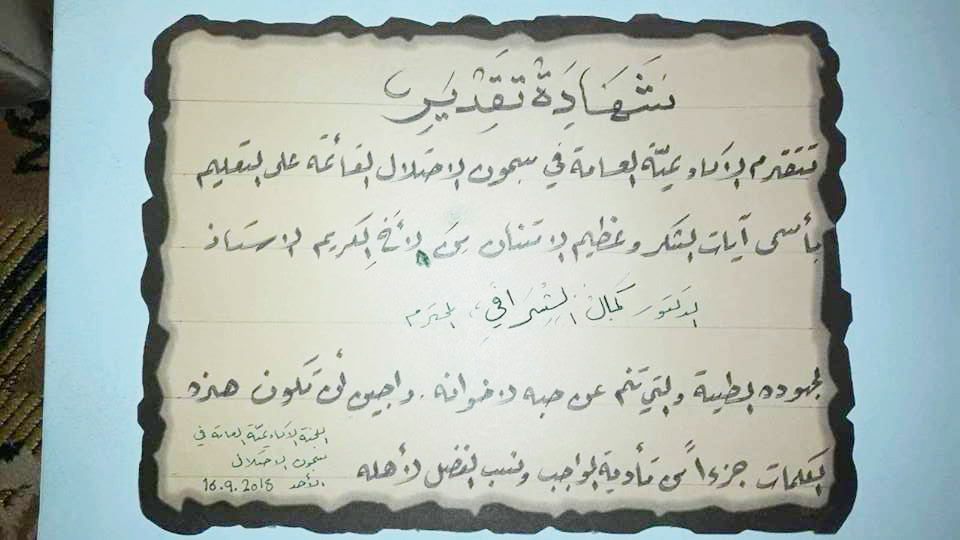 شَهَادَةُ تَقْدِيرٍ
تتقدم الأكاديميّة العامة في سجون الاحتلال القائمة على التعليم
بأسمى آيات الشكر وعظيم الامتنان مِنَ الأَخِ الكريم الاستاذ
الدكتور كمال الشرافي، المحترم
لجهوده الطيبة والتي تنم عن حبه لاخوانه. راجين أن تكون هذه
الكلمات جزءاً من تأدية الواجب ونسب الفضل لأهله
اللجنة الأكاديميّة العامة في
سجون الاحتلال
الأحد 16.9.2018